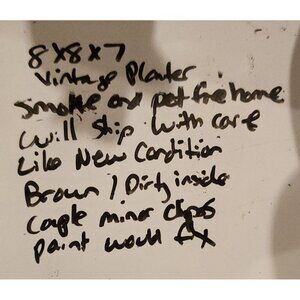 8x8x7
Vintage Planter
smoke and pet free home
will ship with care
Like New Condition
Brown / Dirty inside
couple minor chips
paint would fix